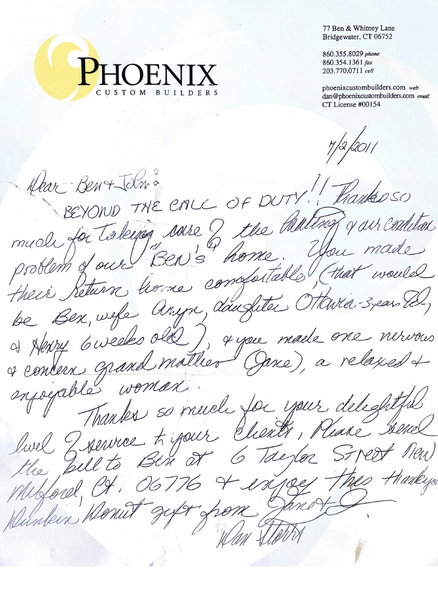 77 Ben & Whitney Lane
Bridgewater, CT 06752
860.355.8029 phone
860.354.1361 fax
203.770.0711 cell
phoenixcustombuilders.com web
dan@phoenixcustombuilders.com email
CT License #00154
PHOENIX
CUSTOM BUILDERS
7/2/2011
Dear Ben & John:
BEYOND THE CALL OF DUTY!! Thanks so
much for taking care of the heating & air condition
problem of our "BEN'S" home. You made
their return home comfortable, (that would
be Ben, wife Aryn, daughter 3 years old,
& Henry 6 weeks old), & you made one nervous
& concern grand mother (Jane), a relaxed &
enjoyable woman.
Thanks so much for your delightful
level of service to your clients, Please send
the bill to Ben at 6 Taylor Street New
Milford, Ct. 06776 & enjoy this thankyou
Dunkin Donut gift from Jane & I
Dan